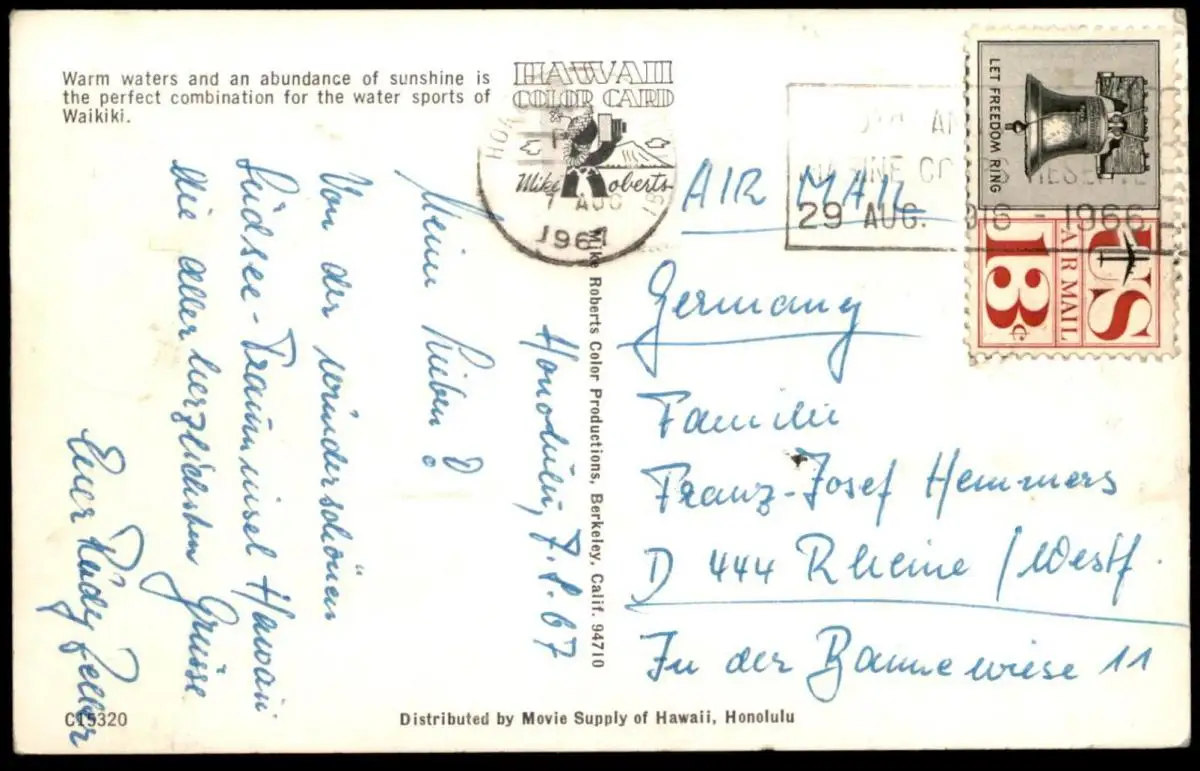 Warm waters and an abundance of sunshine is
the perfect combination for the water sports of
Waikiki.
HAWAII
COLOR CARD
Mike Roberts
7 AUG
1967
29 AUG. 1916 - 1966
LET FREEDOM RING
US
AIR MAIL
13c
AIR MAIL
Germany
Familie
Franz-Josef Hemmers
D 444 Rheine / Westf.
In der Bannewiese 11
Honolulu, 7.8.67
Meine Lieben D.
Von der wunderschönen
Südsee-Trauminsel Hawaii
die aller herzlichsten Grüsse
Euer
Mike Roberts Color Productions, Berkeley, Calif. 94710
C15320
Distributed by Movie Supply of Hawaii, Honolulu